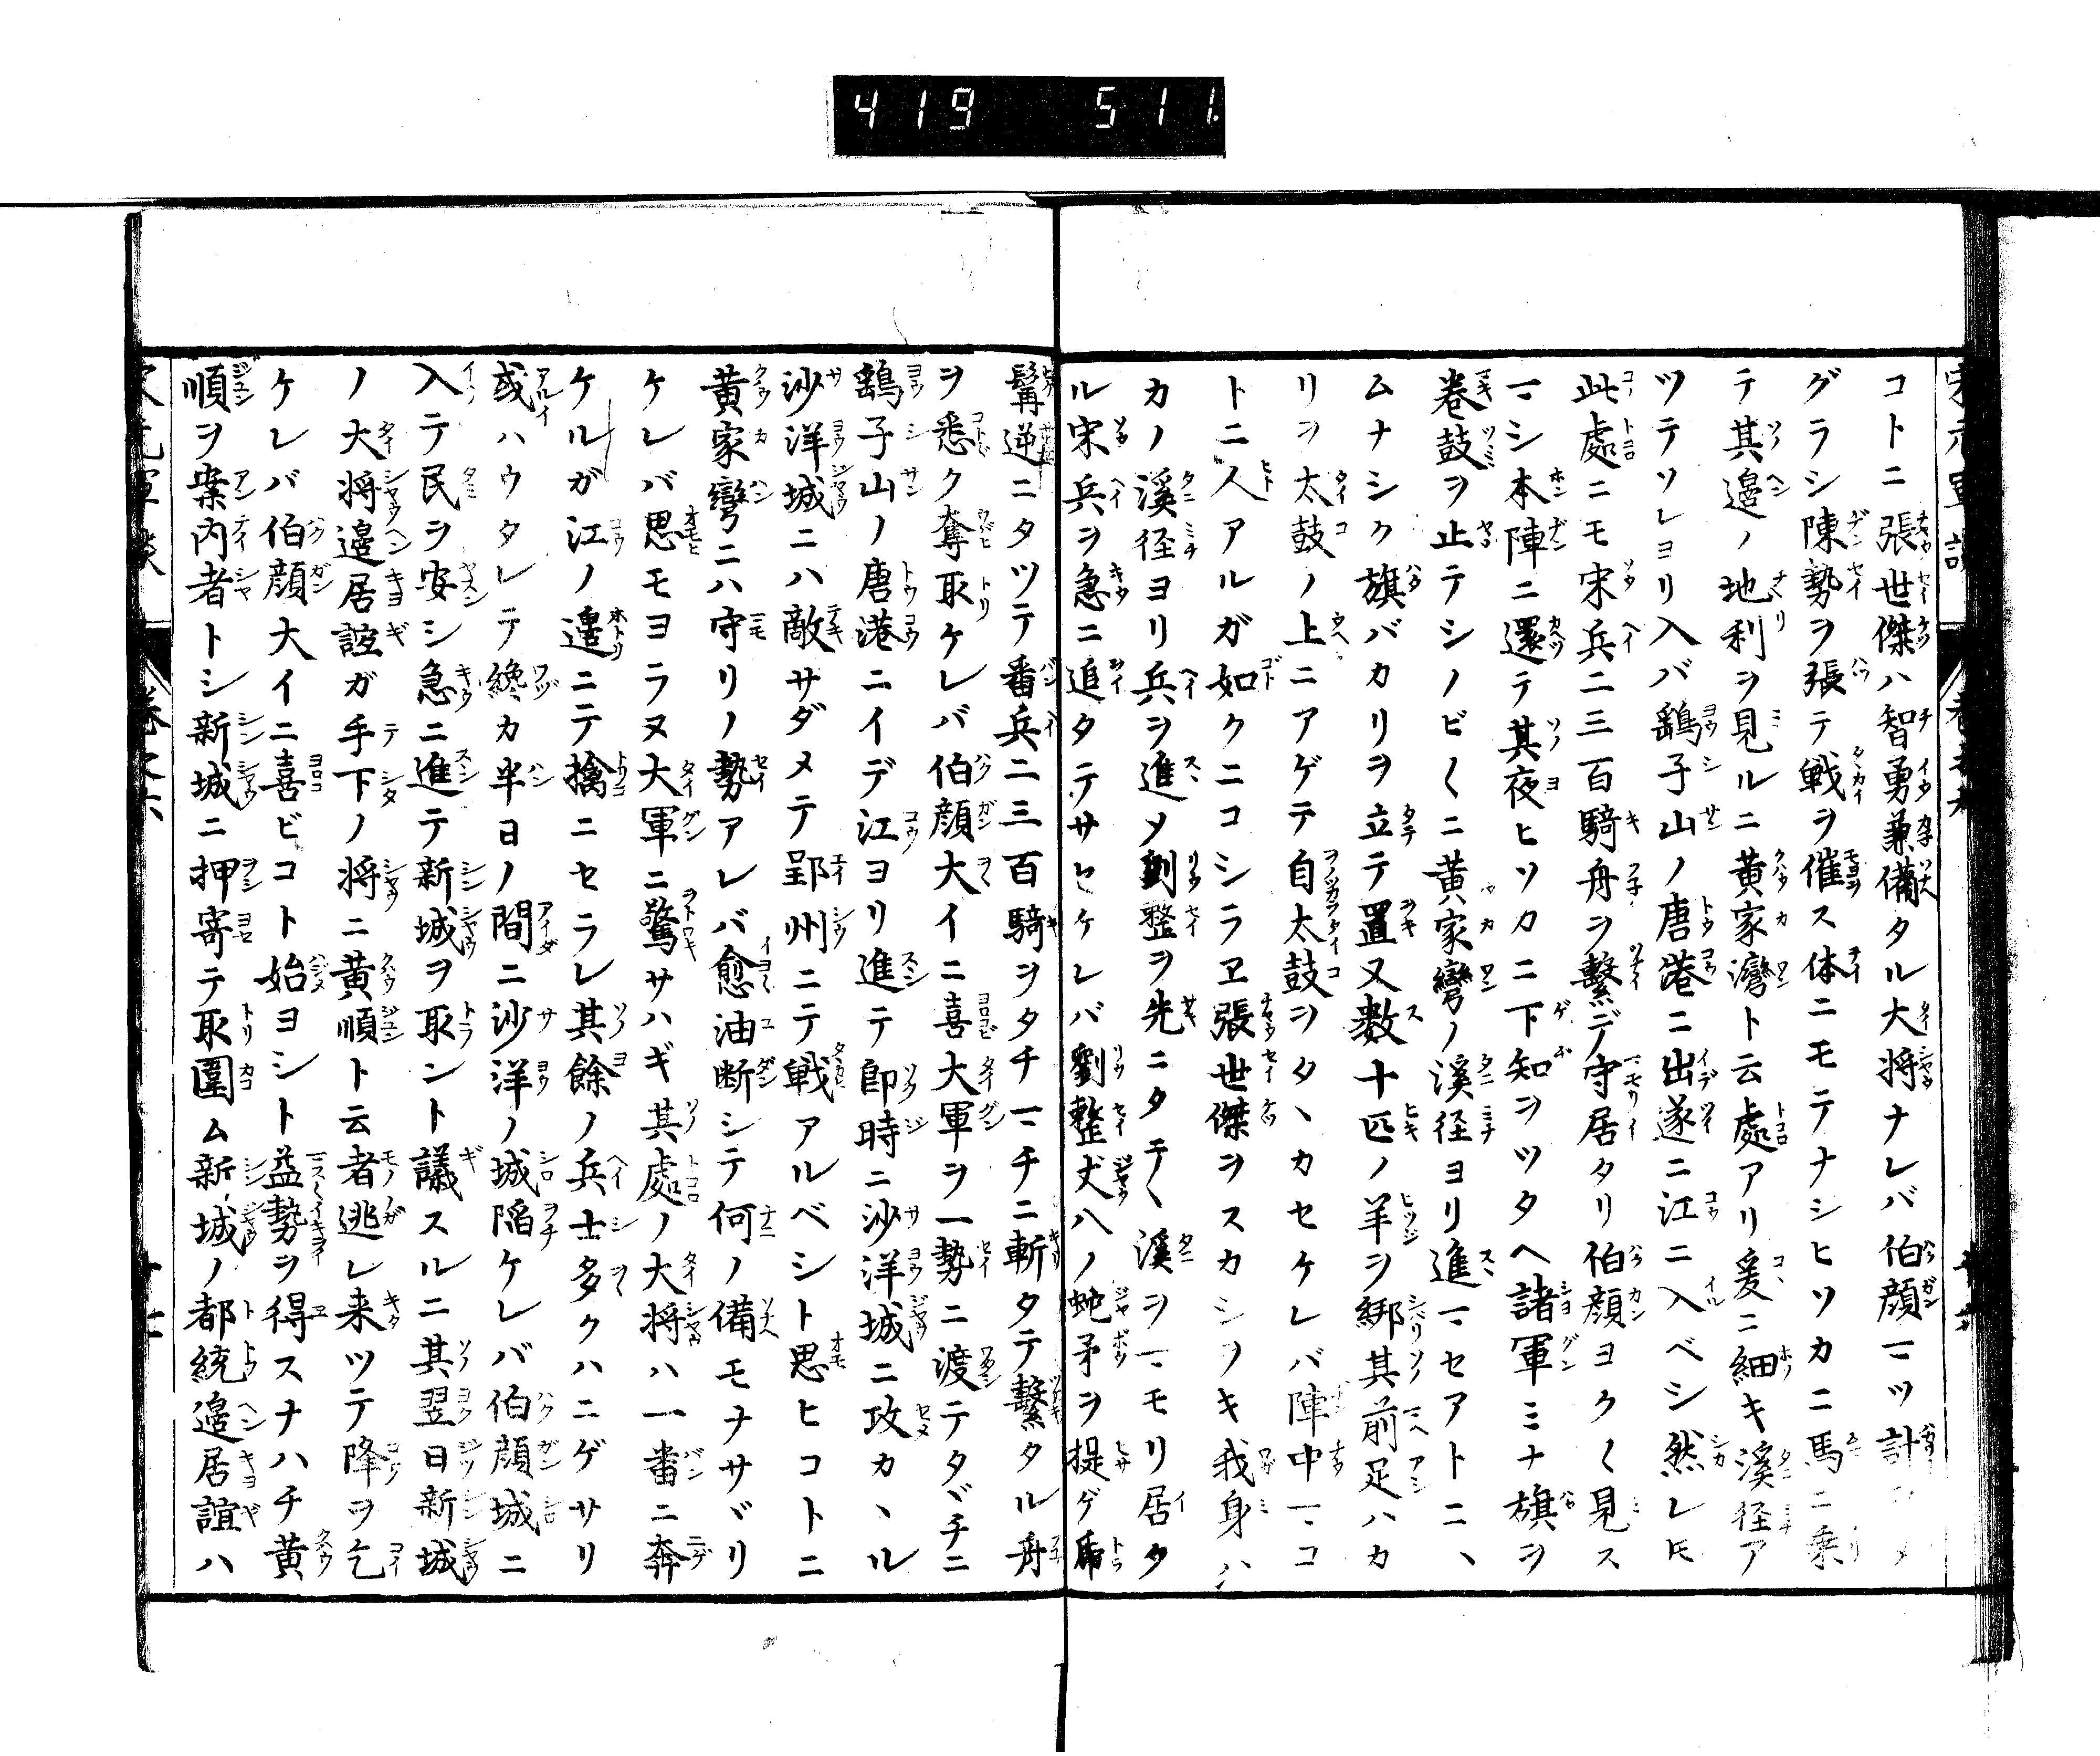 419 511.
コトニ張世傑ハ智勇兼備タル大将ナレバ伯顔マツ計
グラシ陳勢ヲ張テ戦ヲ催ス体ニモテナシヒソカニ馬ニ乗
テ其邉ノ地利ヲ見ルニ黄家灣ト云處アリ爰ニ細キ溪径ア
ツテソレヨリ入バ鷂子山ノ唐港ニ出遂ニ江ニ入ベシ然レ𪜈
此處ニモ宋兵二三百騎舟ヲ繋デ守居タリ伯顔ヨク〱見ス
マシ本陣ニ還テ其夜ヒソカニ下知ヲツタヘ諸軍ミナ旗ヲ
巻鼓ヲ止テシノビ〱ニ黄家彎ノ溪径ヨリ進マセアトニヽ
ムナシク旗バカリヲ立テ置又数十匹ノ羊ヲ綁其前足ハカ
リヲ太鼓ノ上ニアゲテ自太鼓ヲタヽカセケレバ陣中マコ
トニ人アルガ如クニコシラヱ張世傑ヲスカシヲキ我身ハ
カノ溪径ヨリ兵ヲ進メ劉整ヲ先ニタテ〱溪ヲマモリ居タ
ル宋兵ヲ急ニ追タテサセケレバ劉整丈八ノ蛇矛ヲ提ゲ馬
髯逆ニタツテ番兵二三百騎ヲタチマチニ斬タテ繋タル舟
ヲ悉ク奪取ケレバ伯顔大イニ喜大軍ヲ一勢ニ渡テタヾチニ
鷂子山ノ唐港ニイデ江ヨリ進テ即時ニ沙洋城ニ攻カヽル
沙洋城ニハ敵サダメテ郢州ニテ戦アルベシト思ヒコトニ
黄家彎ニハ守リノ勢アレバ愈油断シテ何ノ備モナサヾリ
ケレバ思モヨラヌ大軍ニ驚サハギ其處ノ大将ハ一番ニ奔
ケルガ江ノ邉ニテ擒ニセラレ其餘ノ兵士多クハニゲサリ
或ハウタレテ纔カ半日ノ間ニ沙洋ノ城陥ケレバ伯顔城ニ
入テ民ヲ安シ急ニ進テ新城ヲ取ント議スルニ其翌日新城
ノ大将邉居誼ガ手下ノ将ニ黄順ト云者逃レ来ツテ降ヲ乞
ケレバ伯顔大イニ喜ビコト始ヨシト益勢ヲ得スナハチ黄
順ヲ案内者トシ新城ニ押寄テ取圍ム新城ノ都統邉居誼ハ
卷之六